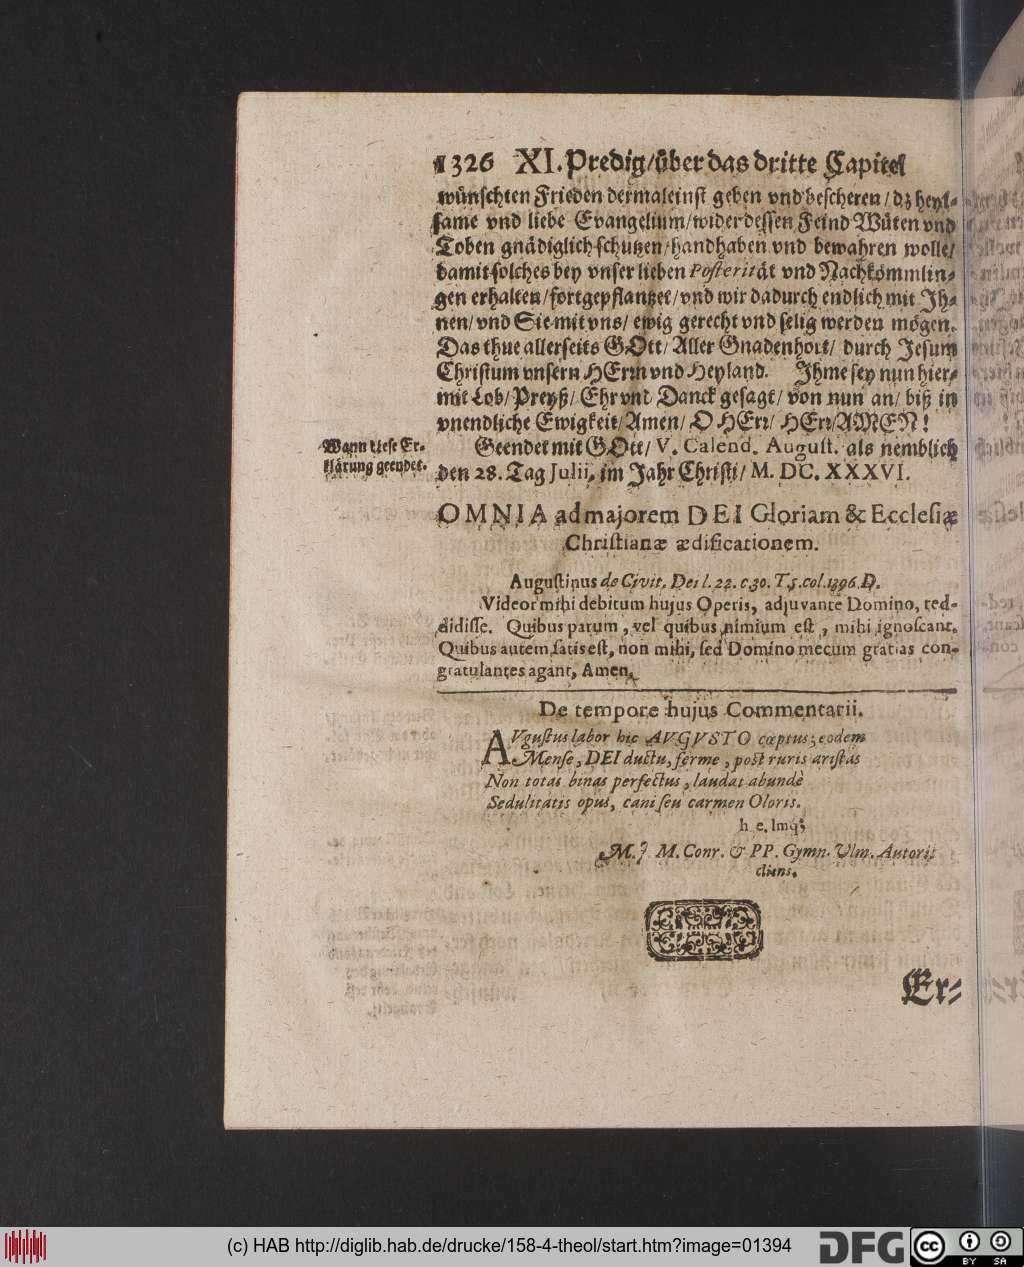 1326 XI. Predig/über das dritte Capitel
wünschten Frieden dermaleinst geben vnd bescheren/dz heyl-
same vnd liebe Evangelium/wider dessen Feind Wüten vnd
Toben gnädiglich schutzen/handhaben vnd bewahren wolle/
damit solches bey vnser lieben Posterität vnd Nachkömmlin-
gen erhalten/fortgepflantzet/vnd wir dadurch endlich mit Ih-
nen/vnd Sie mit vns/ewig gerecht vnd selig werden mögen.
Das thue allerseits GOtt/Aller Gnadenhort/durch Jesum
Christum vnsern HErrn vnd Heyland. Ihme sey nun hier-
mit Lob/Preyß/Ehr vnd Danck gesagt/von nun an/biß in
vnendliche Ewigkeit/Amen/O HErr/HErr/AMEN!
Wann diese Er-
klärung geendet.
Geendet mit GOtt/V. Calend. August. als nemblich
den 28. Tag Julii, im Jahr Christi/M. DC. XXXVI.
OMNIA ad majorem DEI Gloriam & Ecclesiæ
Christianæ ædificationem.
Augustinus de Civit. Dei l. 22. c. 30. T. 5. col. 1396. D.
Videor mihi debitum hujus Operis, adjuvante Domino, red-
didisse. Quibus parum, vel quibus nimium est, mihi ignoscant.
Quibus autem satis est, non mihi, sed Domino mecum gratias con-
gratulantes agant, Amen.
De tempore hujus Commentarii.
AVgustus labor hic AVGVSTO cœptus; eodem
Mense, DEI ductu, ferme, post ruris aristas
Non totas binas perfectus, laudat abundè
Sedulitatis opus, cani seu carmen Oloris.
h. e. lmq;
M. J. M. Conr. & PP. Gymn. Vlm. Autoris
cliens.
Er-
(c) HAB http://diglib.hab.de/drucke/158-4-theol/start.htm?image=01394
DFG
cc
BY SA